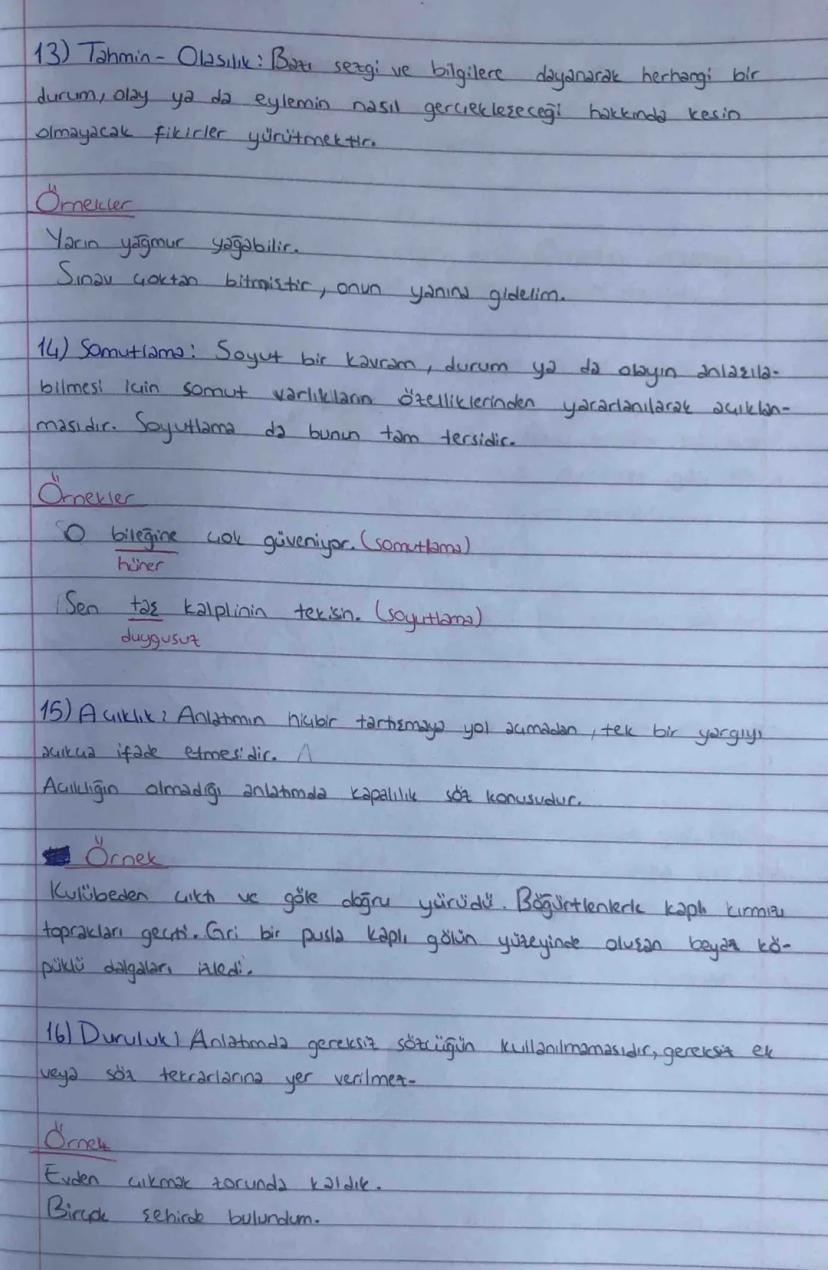 13) Tahmin - Olasılık: Bazı sezgi ve bilgilere dayanarak herhangi bir
durum, olay ya da eylemin nasıl gerçekleşeceği hakkında kesin
olmayacak fikirler yürütmektir.
Örnekler
Yarın yağmur yağabilir.
Sınav çoktan bitmiştir, onun yanına gidelim.
14) Somutlama: Soyut bir kavram, durum ya da olayın anlaşıla-
bilmesi için somut varlıkların özelliklerinden yararlanılarak açıklan-
masıdır. Soyutlama da bunun tam tersidir.
Örnekler
O bileğine çok güveniyor. (somutlama)
hüner
Sen taş kalplinin tekisin. (soyutlama)
duygusuz
15) Açıklık: Anlatımın hiçbir tartışmaya yol açmadan, tek bir yargıyı
açıkça ifade etmesidir.
Açıklığın olmadığı anlatımda kapalılık söz konusudur.
Örnek
Kulübeden çıktı ve göle doğru yürüdü. Böğürtlenlerle kaplı kırmızı
toprakları geçti. Gri bir pusla kaplı gölün yüzeyinde oluşan beyaz kö-
püklü dalgaları izledi.
16) Duruluk: Anlatımda gereksiz sözcüğün kullanılmamasıdır, gereksiz ek
veya söz tekrarlarına yer verilmez.
Örnek
Evden çıkmak zorunda kaldık.
Birçok şehirde bulundum.